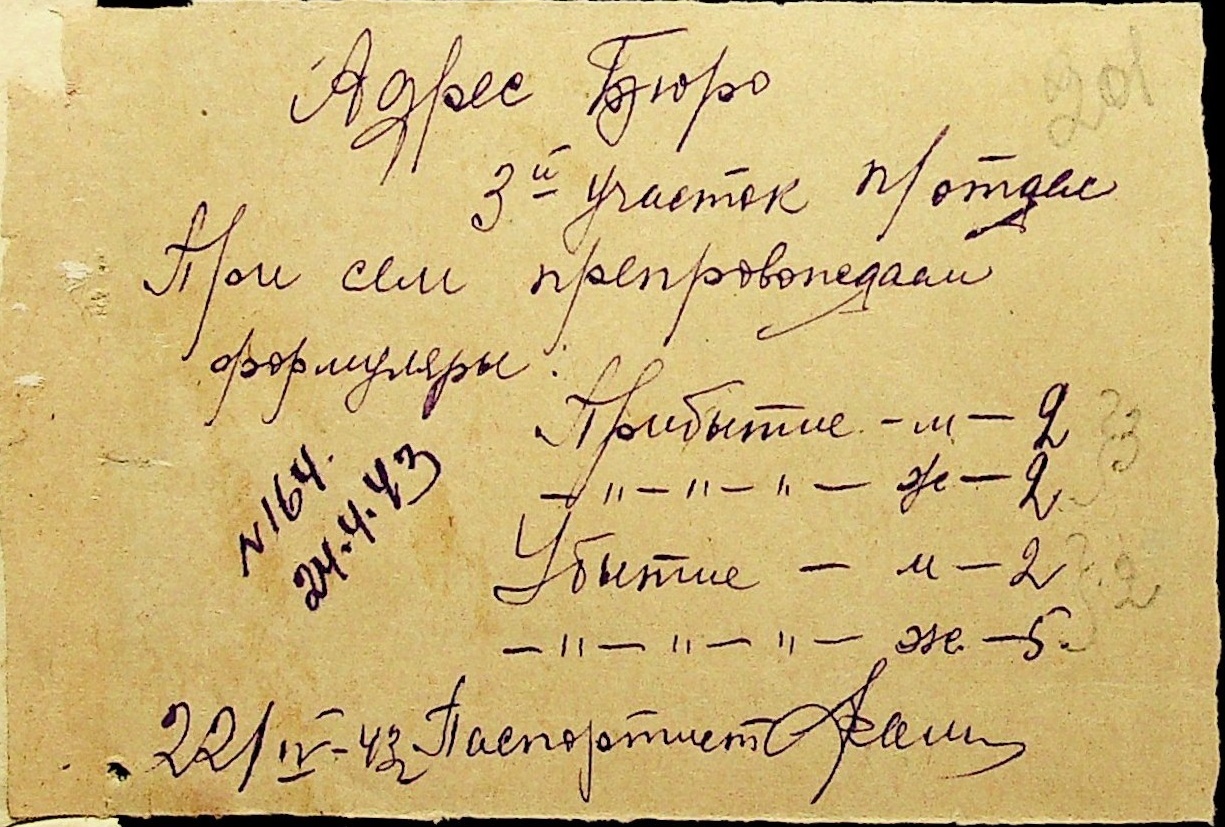 201
Адрес Бюро
3й участок п/отдел
При сем препровождаем
формуляры:
Прибытие - м - 2
- " - " - " - ж - 2
Убытие - м - 2
- " - " - " - ж. - 5.
№164.
24.4.43
22/IV-43 Паспортист